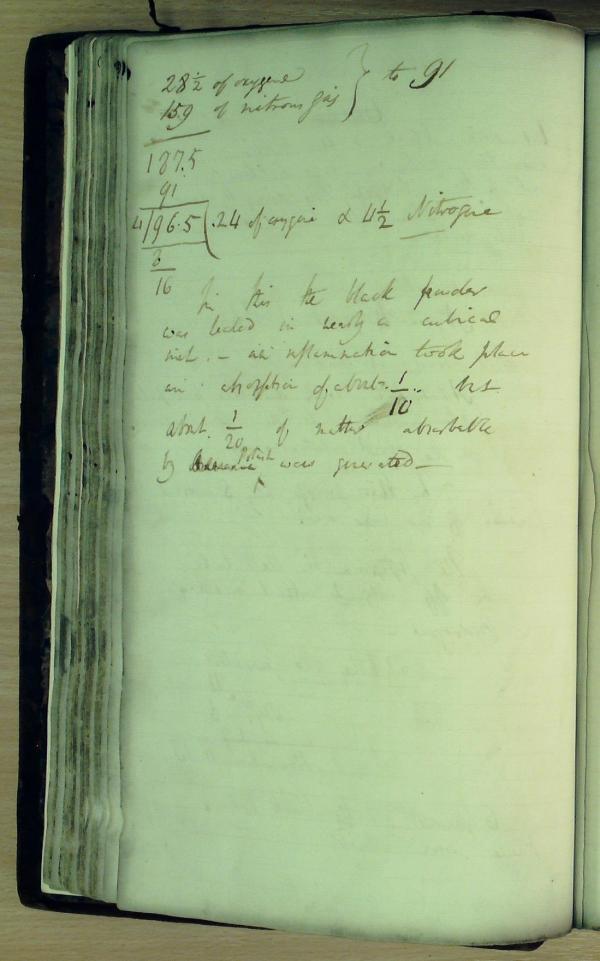 28½ of oxygene } to 91
159 of nitrous gas
187.5
91
4/96.5(.24 of oxygene & 4½ Nitrogene
8
16
In this the black powder
was heated in nearly a cubical
inch. - an inflammation took place
an absorption of about 1/10 .. but
about 1/20 of matter absorbable
by Potash was generated —